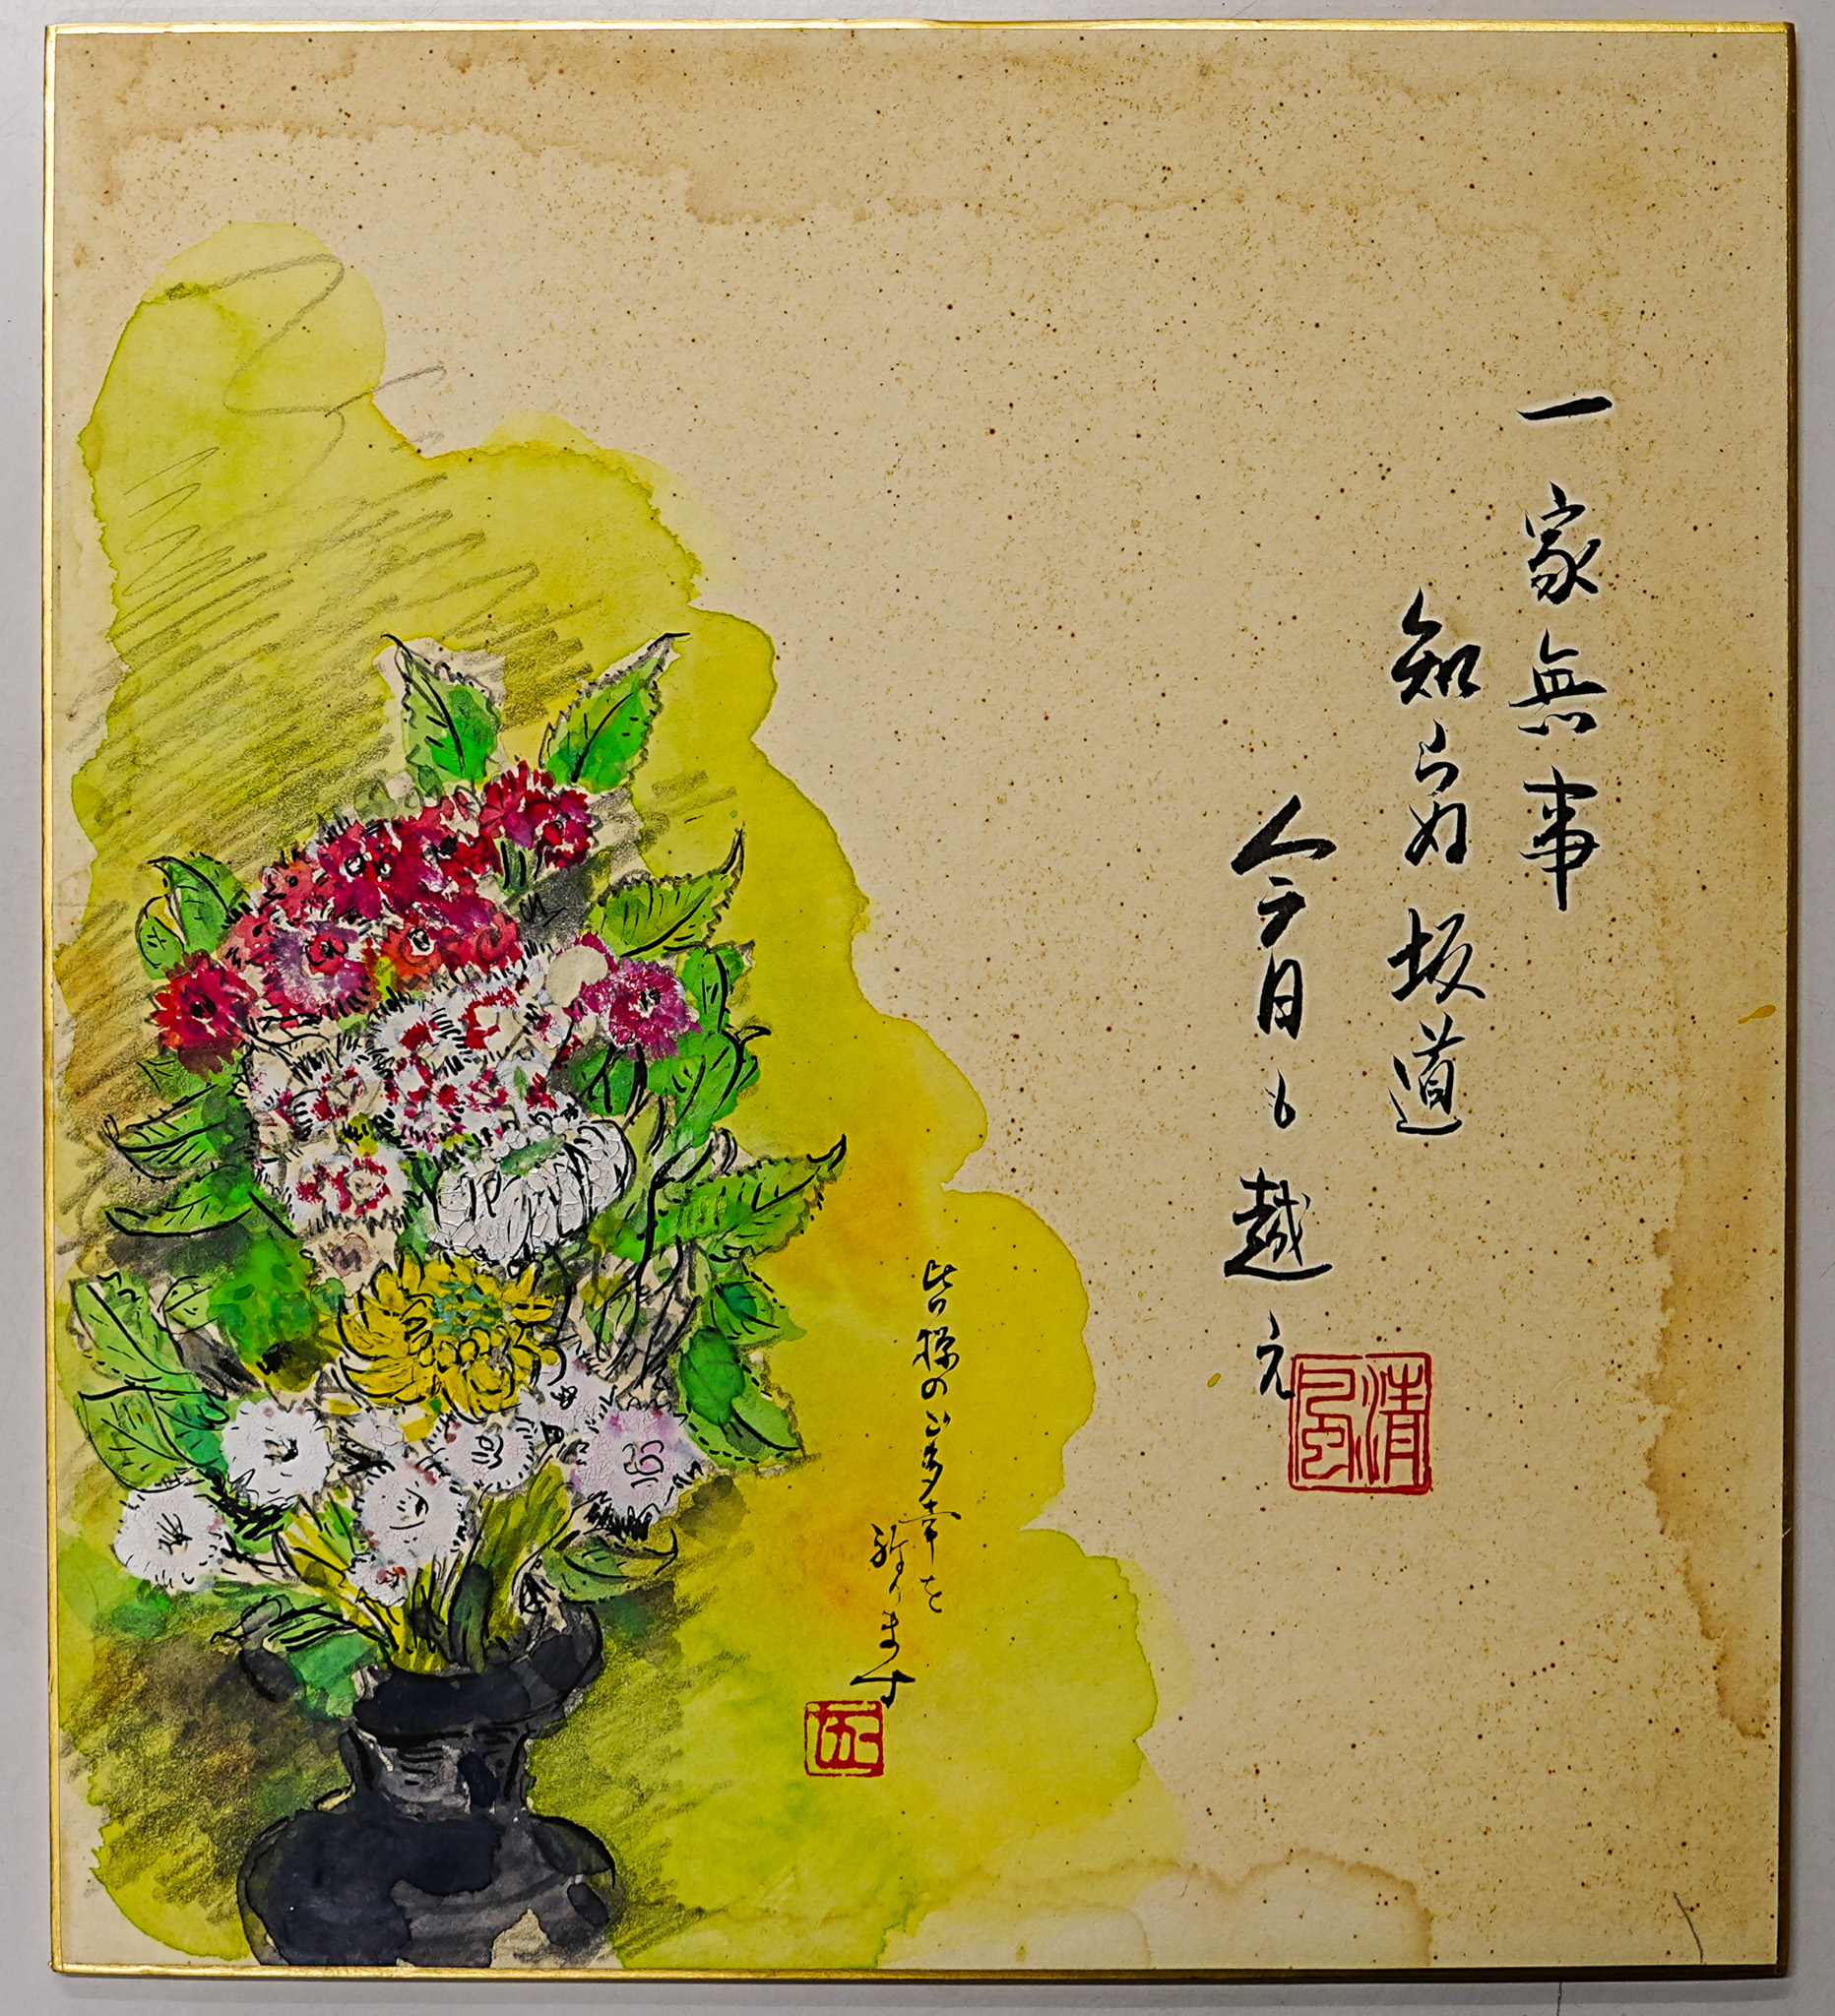 一家無事
知らぬ坂道
今日も越え
清風
皆様のご多幸を
祈ります